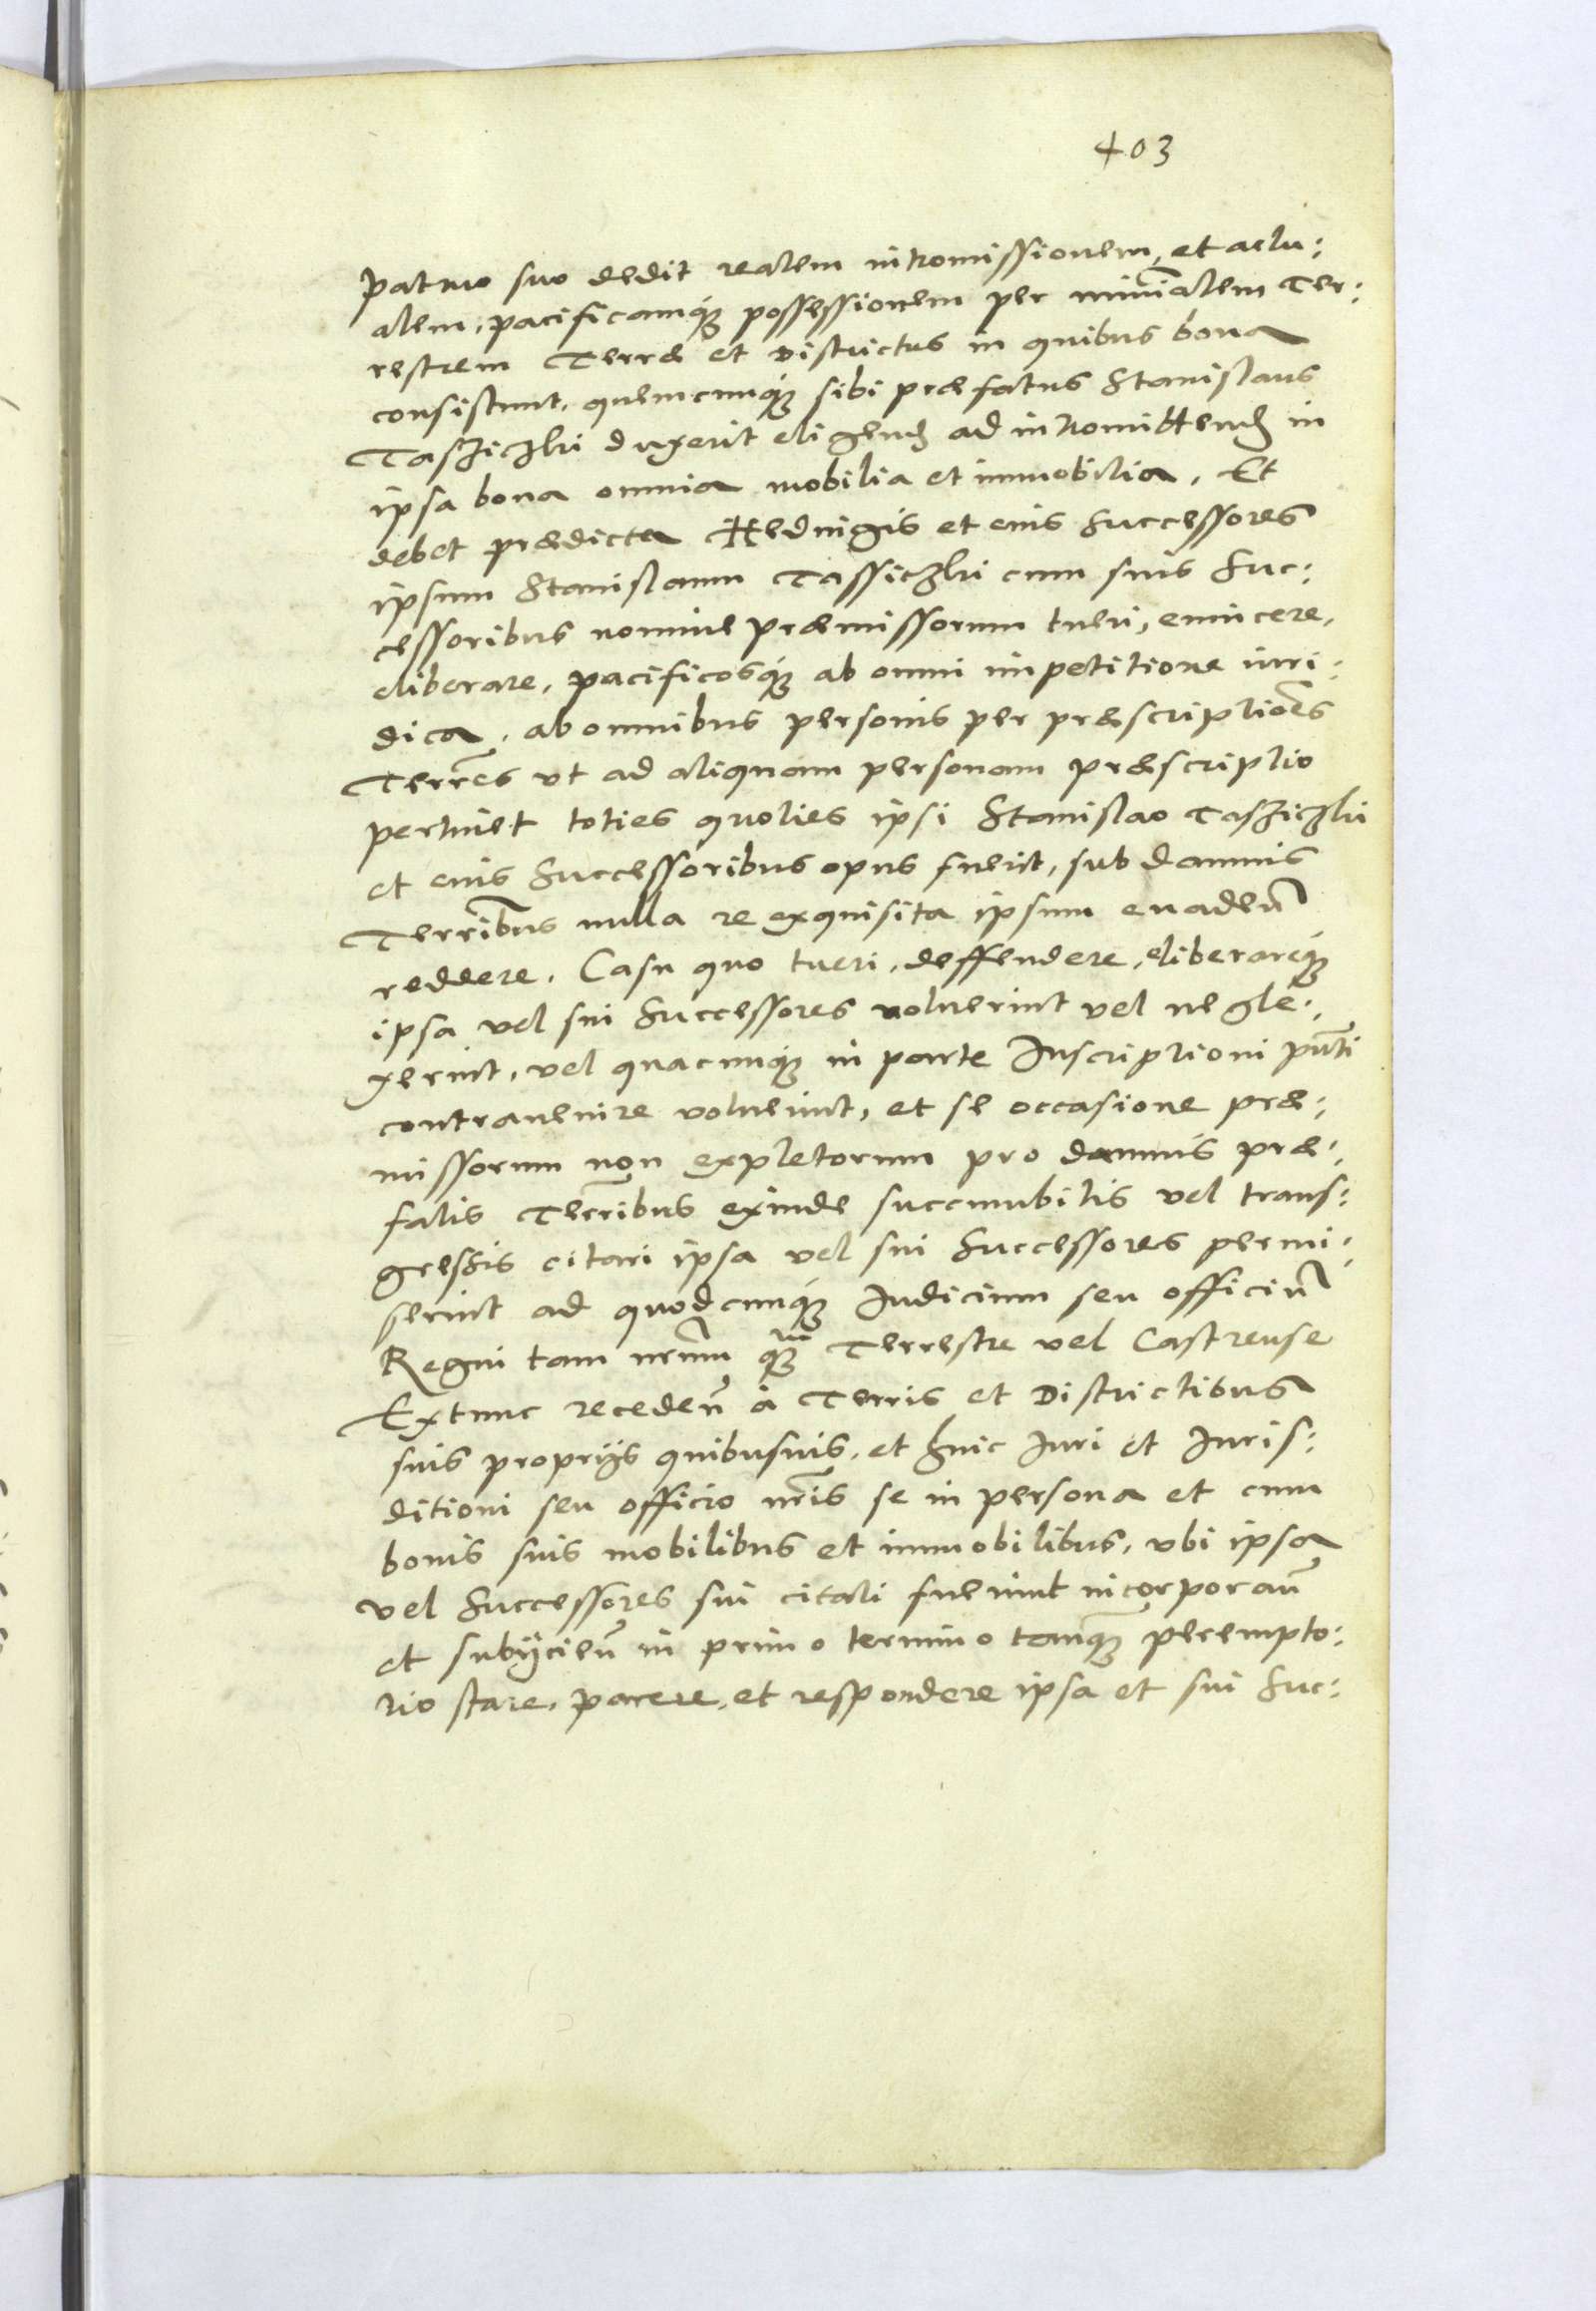 403
patruo suo dedit realem intromissionem, et actu:
alem, pacificamq́ possessionem per minīalem Ter:
restrem Terræ et Districtus in quibus bona
consistunt, quemcunq́ sibi præfatus Stanislaus
Tasziczki duxerit eligend̄ ad intromittend̄ in
ipsa bona omnia mobilia et immobilia. Et
debet prædicta Hedvigis et eius Successores
ipsum Stanislaum Tassiczki cum suis Suc:
cessoribus nomine præmissorum tueri, evincere,
eliberare, pacificosq́ ab omni impetitione iuri:
dica, ab omnibus personis per præscriptiōes
Terrēs vt ad aliquam personam præscriptio
pertinet toties quoties ipsi Stanislao Tasziczki
et eius Successoribus opus fuerit, sub damnis
Terrībus nulla re exquisita ipsum euadeñ
reddere. Casu quo tueri, deffendere, eliberareq́
ipsa vel sui Successores noluerint vel negle:
xerint, vel quacunq́ in parte Inscriptioni pñti
contrauenire voluerint, et se occasione præ:
missorum non expletorum pro damnis præ:
fatis Terrībus exinde succumbitis vel trans:
gressis citari ipsa vel sui Successores permi:
serint ad quodcunq́ Iudicium seu officiū
Regni tam nrūm q̄m Terrestre vel Castrense
Extunc recedeñ à Terris et Districtibus
suis proprijs quibusuis, et huic Iuri et Iuris:
ditioni seu officio nr̄is se in persona et cum
bonis suis mobilibus et immobilibus, vbi ipsa
vel Successores sui citati fuerint incorporañ
et subijcieñ in primo termino tanq̄ perempto:
rio stare, parere, et respondere ipsa et sui Suc: